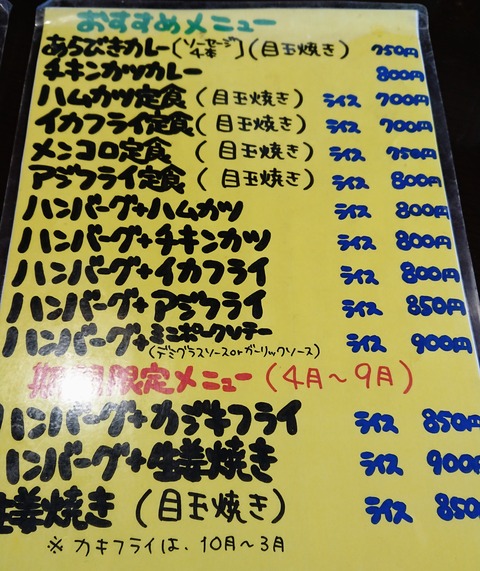 おすすめメニュー
あらびきカレー[ソーセージ4本](目玉焼き) 750円
チキンカツカレー 800円
ハムカツ定食(目玉焼き) ライス 700円
イカフライ定食(目玉焼き) ライス 700円
メンコロ定食(目玉焼き) ライス 750円
アジフライ定食(目玉焼き) ライス 800円
ハンバーグ+ハムカツ ライス 800円
ハンバーグ+チキンカツ ライス 800円
ハンバーグ+イカフライ ライス 800円
ハンバーグ+アジフライ ライス 850円
ハンバーグ+ミニポークソテー ライス 900円
(デミグラスソースorガーリックソース)
期間限定メニュー(4月〜9月)
ハンバーグ+カジキフライ ライス 850円
ハンバーグ+生姜焼き ライス 900円
生姜焼き(目玉焼き) ライス 850
※カキフライは、10月〜3月